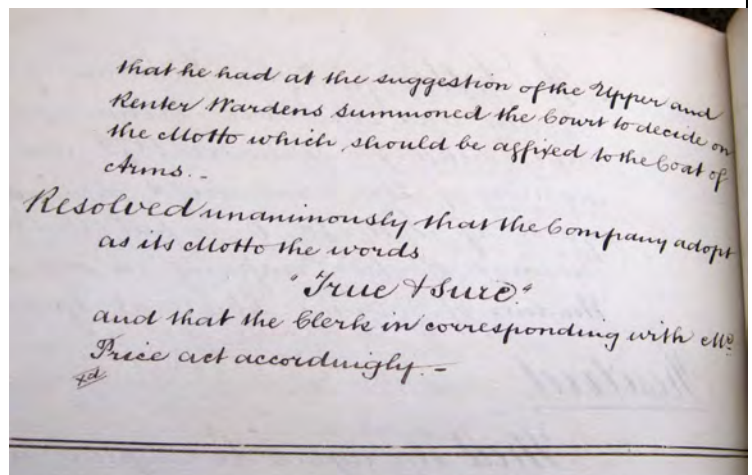 that he had at the suggestion of the Upper and
Renter Wardens summoned the Court to decide on
the Motto which should be affixed to the Coat of
Arms. -
Resolved unanimously that the Company adopt
as its Motto the words
"True & Sure."
and that the Clerk in corresponding with Mr.
Price act accordingly. -